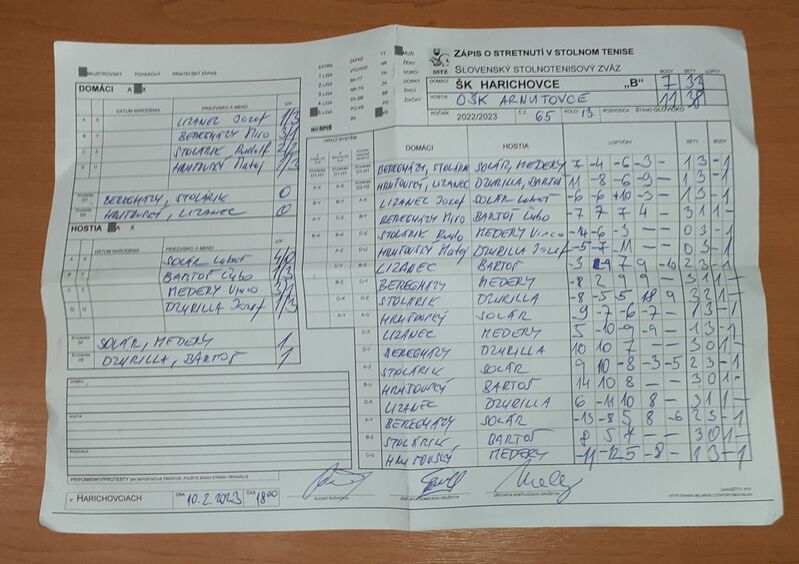 MAJSTROVSKÝ POHÁROVÝ PRIATEĽSKÝ ZÁPAS
ZÁPIS O STRETNUTÍ V STOLNOM TENISE
SLOVENSKÝ STOLNOTENISOVÝ ZVÄZ
MUŽI
ŽENY
DORCI
DORKY
ŽIACI
ŽIAČKY
EXTRA
1.LIGA
2.LIGA
3.LIGA
4.LIGA
5.LIGA
6.LIGA
BODY SETY LOPTY
DOMÁCI ŠK HARICHOVCE „B" 7 33
HOSTIA OŠK ARNUTOVCE 11 38
ROČNÍK 2022/2023 Č.Z. 65 KOLO 13
DOMÁCI A X
DÁTUM NARODENIA PRIEZVISKO A MENO V/P
LIZANEC Jozef 1/3
BEREGHÁZY Miro 3/1
STOLÁRIK Rudolf 2/2
HANTOVSKÝ Matej 1/3
BEREGHÁZY, STOLÁRIK 0
HANTOVSKÝ, LIZANEC 0
HOSTIA A X
DÁTUM NARODENIA PRIEZVISKO A MENO V/P
SOLÁR Ľuboš 4/0
BARTOŠ Ľubo 1/3
MEDERY Vinco 3/1
DZURILLA Jozef 1/3
SOLÁR, MEDERY 1
DZURILLA, BARTOŠ 1
HRACÍ SYSTÉM
DOMÁCI HOSTIA LOPTIČKY SETY BODY
BEREGHÁZY, STOLÁRIK SOLÁR, MEDERY 7 -4 -6 -3 - 1 3 - 1
HANTOVSKÝ, LIZANEC DZURILLA, BARTOŠ 11 -8 -6 -9 - 1 3 - 1
LIZANEC Jozef SOLÁR Ľuboš -6 -6 +10 -3 - 1 3 - 1
BEREGHÁZY Miro BARTOŠ Ľubo -7 7 7 4 - 3 1 1 -
STOLÁRIK Rudo MEDERY Vinco -4 -6 -3 - - 0 3 - 1
HANTOVSKÝ Matej DZURILLA Jozef -5 -7 -11 - - 0 3 - 1
LIZANEC BARTOŠ -3 9 -7 9 -10 2 3 - 1
BEREGHÁZY MEDERY -8 2 9 9 - 3 1 1 -
STOLÁRIK DZURILLA -8 -5 5 18 9 3 2 1 -
HANTOVSKÝ SOLÁR 9 -7 -6 -7 - 1 3 - 1
LIZANEC MEDERY 5 -10 -9 -9 - 1 3 - 1
BEREGHÁZY DZURILLA 10 10 7 - - 3 0 1 -
STOLÁRIK SOLÁR 9 10 -8 -3 -5 2 3 - 1
HANTOVSKÝ BARTOŠ 14 10 8 - - 3 0 1 -
LIZANEC DZURILLA 6 -11 10 8 - 3 1 1 -
BEREGHÁZY SOLÁR -13 -8 5 8 -6 2 3 - 1
STOLÁRIK BARTOŠ 8 5 7 - - 3 0 1 -
HANTOVSKÝ MEDERY -11 -12 5 -8 - 1 3 - 1
DOMÁCI
HOSTIA
ROZHODCA
PRIPOMIENKY/PROTESTY (AK NEPOSTAČUJE PRIESTOR, POUŽITE ZADNÚ STRANU ORIGINÁLU)
V HARICHOVCIACH DŇA 10.2.2023 ČAS 18:00
HLAVNÝ ROZHODCA
ZÁSTUPCA DOMÁCEHO DRUŽSTVA
ZÁSTUPCA HOSŤUJÚCEHO DRUŽSTVA